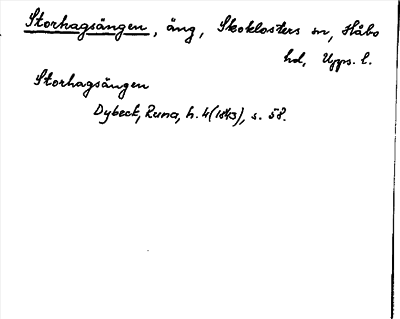 Storhagsängen, äng, Skoklosters sn, Håbo
hd, Upps. l.
Storhagsängen
Dybeck, Runa, h. 4 (1843), s. 58.